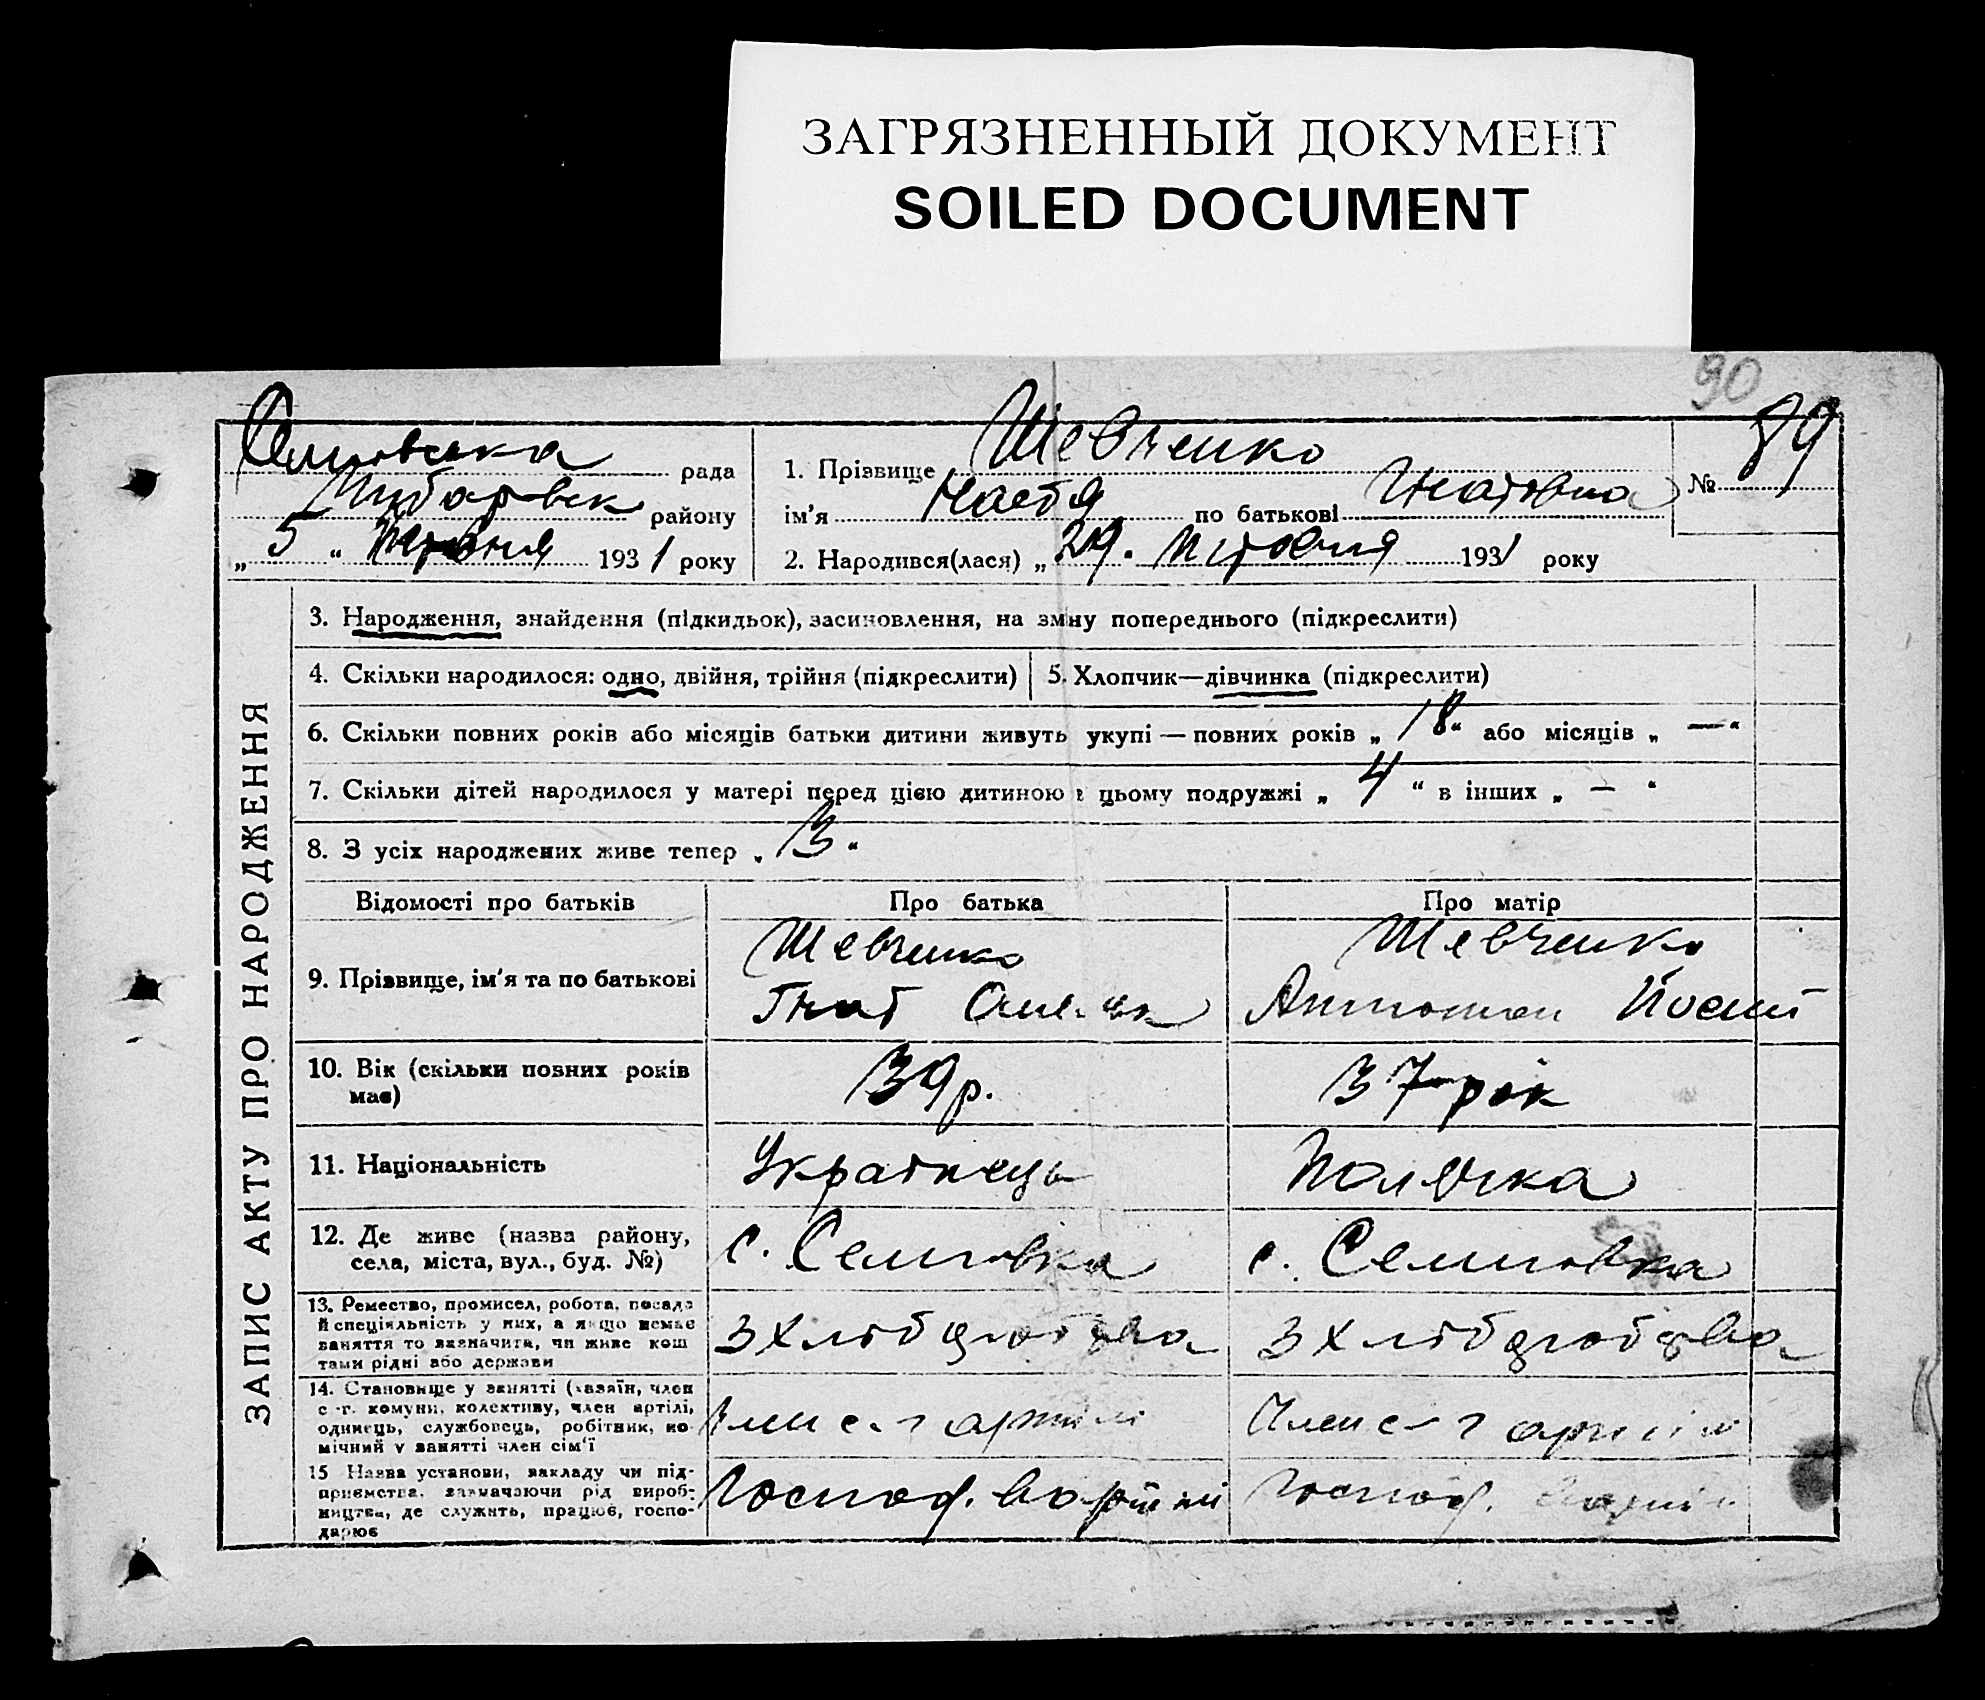 ЗАГРЯЗНЕННЫЙ ДОКУМЕНТ
SOILED DOCUMENT
90
рада
району
„ 5 “ 1931 року
1. Прізвище Шевченко
ім'я Настя по батькові Гнатовна
2. Народився(лася) „ 29. 1931 року
№ 89
ЗАПИС АКТУ ПРО НАРОДЖЕННЯ
3. Народження, знайдення (підкидьок), засиновлення, на зміну попереднього (підкреслити)
4. Скільки народилося: одно, двійня, трійня (підкреслити)
5. Хлопчик—дівчинка (підкреслити)
6. Скільки повних років або місяців батьки дитини живуть укупі — повних років „ 18 “ або місяців „ — “
7. Скільки дітей народилося у матері перед цією дитиною в цьому подружжі „ 4 “ в інших „ — “
8. З усіх народжених живе тепер „ 3 “
Відомості про батьків
Про батька
Про матір
9. Прізвище, ім'я та по батькові
Шевченко
Гнат
Шевченко
10. Вік (скільки повних років
має)
39 р.
37 рік
11. Національність
Українець
Полячка
12. Де живе (назва району,
села, міста, вул., буд. №)
с. Семповка
с. Семповка
13. Ремество, промисел, робота, посада
й спеціяльність у них, а якщо немає
заняття то зазначити, чи живе кош
тами рідні або держави
З хлібороб
З хлібороб
14. Становище у занятті (хазяїн, член
с.-г. комуни, колективу, член артілі,
одинець, службовець, робітник, по
мічний у занятті член сім'ї
Член с-г артілі
Член с-г артілі
15 Назва установи, закладу чи під-
приємства, зазначаючи рід вироб-
ництва, де служить, працює, госпо-
дарює
Господ. в артілі
Господ. в артілі